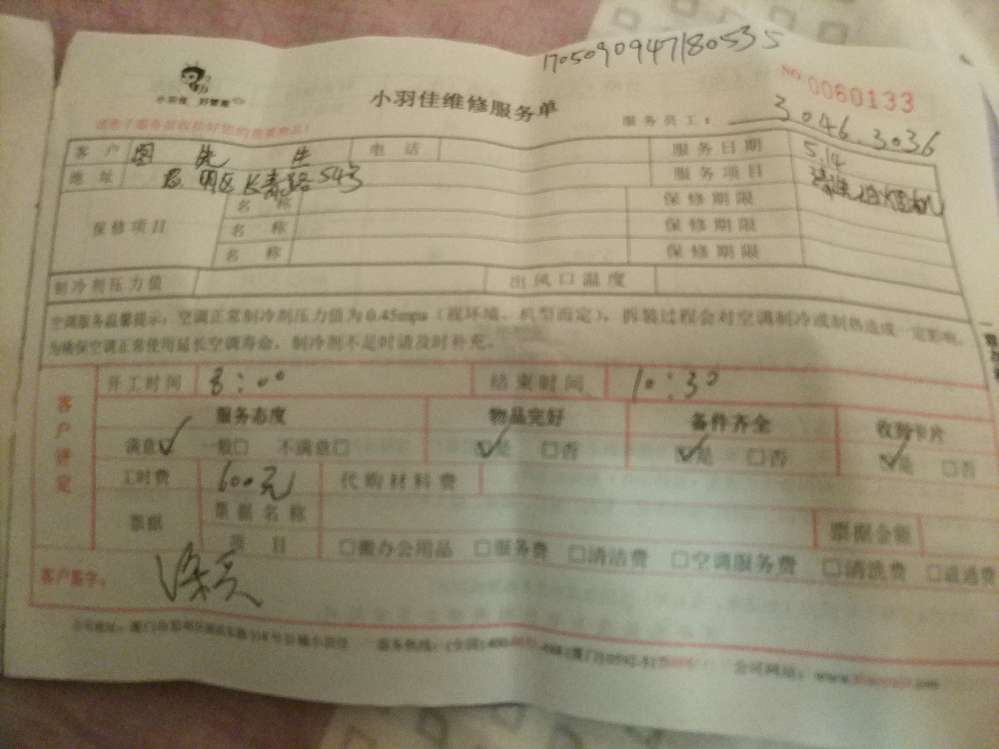 170509094780535
小羽佳 好管家
小羽佳维修服务单
NO. 0060133
服务员工: 3046.3036
客户 先生 电话 服务日期 5.14
地址 思明区长青路54号 服务项目 清洗抽油烟机
保修项目 名称 保修期限
名称 保修期限
名称 保修期限
制冷剂压力值 出风口温度
空调服务温馨提示:空调正常制冷剂压力值为0.45mpa(视环境、机型而定),拆装过程会对空调制冷或制热造成一定影响,
为确保空调正常使用延长空调寿命,制冷剂不足时请及时补充。
客户评定
开工时间 8:00 结束时间 10:30
服务态度 物品完好 备件齐全 收到卡片
满意✓ 一般□ 不满意□ ✓是 □否 ✓是 □否 ✓是 □否
工时费 600元 代购材料费
票据 票据名称 票据金额
项目 □搬办公用品 □服务费 □清洁费 □空调服务费 □清洗费 □疏通费
客户签字: